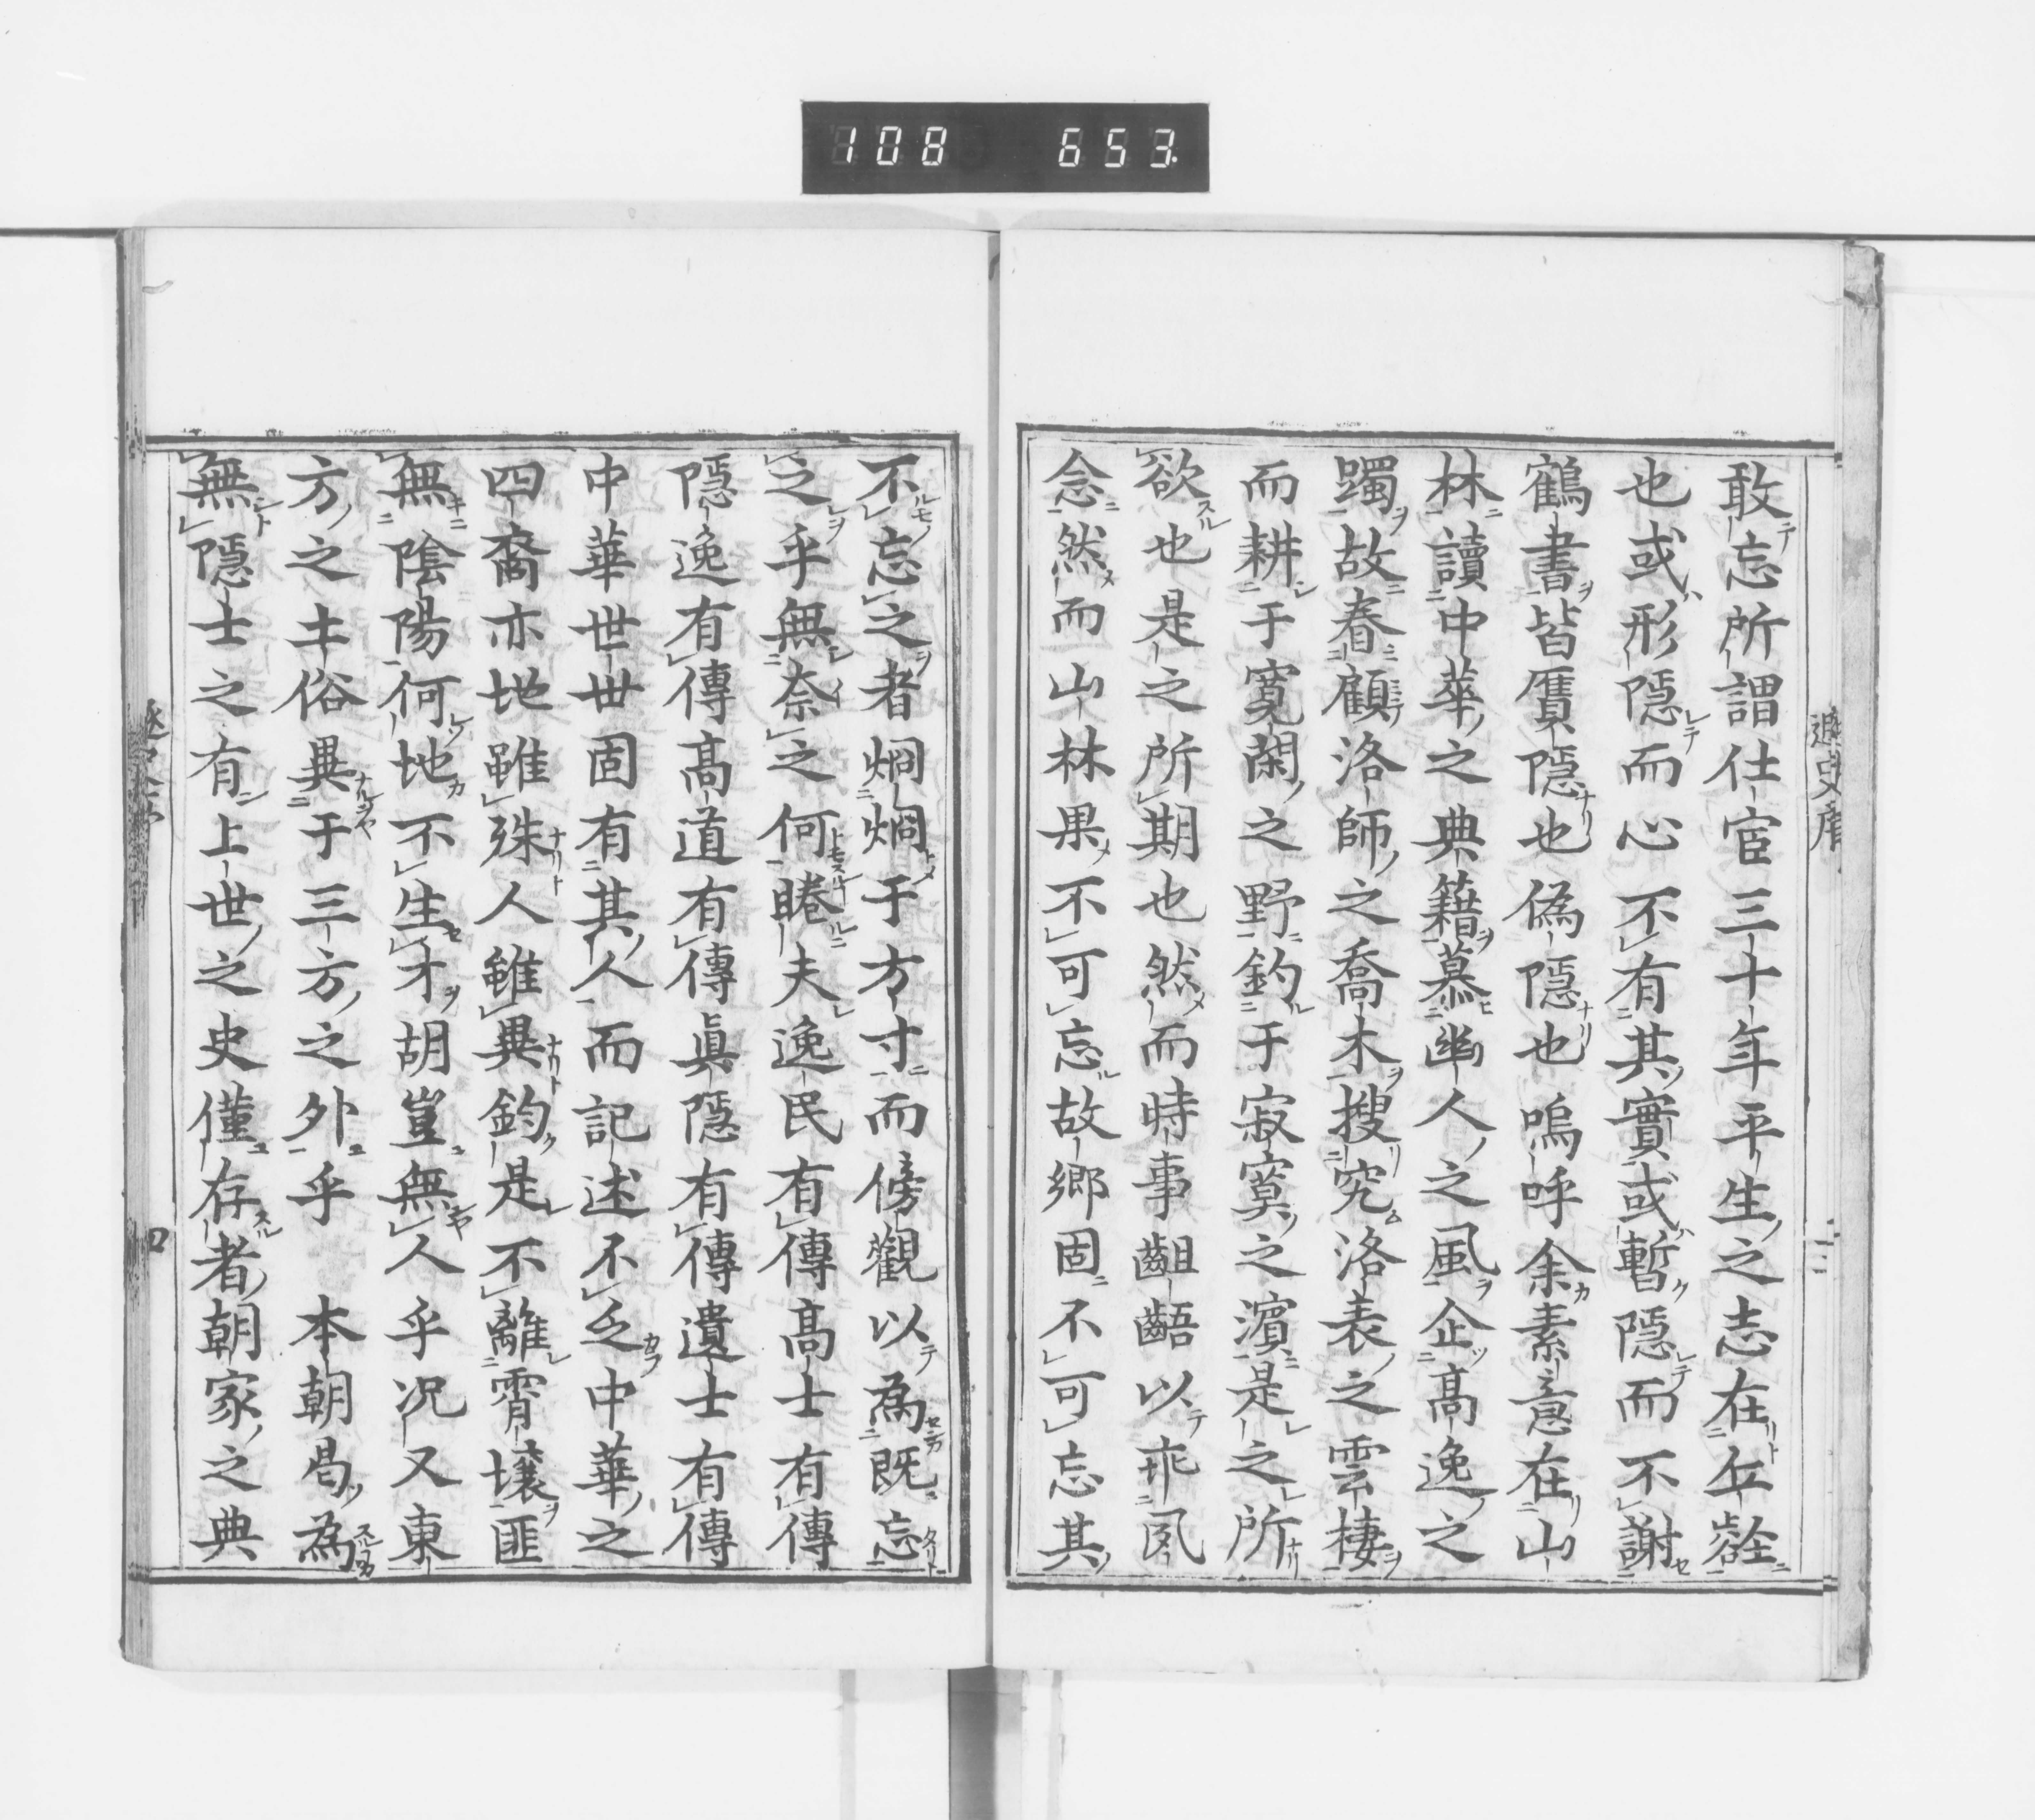 108 653
遯史序
敢忘所謂仕宦三十年平生之志在丘壑
也或形隱而心不有其實或暫隱而不謝
鶴書皆贋隱也偽隱也嗚呼余素意在山
林讀中華之典籍慕幽人之風企高逸之
躅故眷顧洛師之喬木搜究洛表之雲棲
而耕于寬閑之野釣于寂寞之濱是之所
欲也是之所期也然而時事齟齬以乖夙
念然而山林果不可忘故鄉固不可忘其
不忘之者烱烱于方寸而傍觀以為既忘
之乎無奈之何睠夫逸民有傳高士有傳
隱逸有傳高道有傳眞隱有傳遺士有傳
中華世世固有其人而記述不乏中華之
四裔亦地雖殊人雖異鈞是不離霄壤匪
無陰陽何地不生才胡豈無人乎况又東
方之土俗異于三方之外乎　本朝曷為
無隱士之有上世之史僅存者朝家之典
四